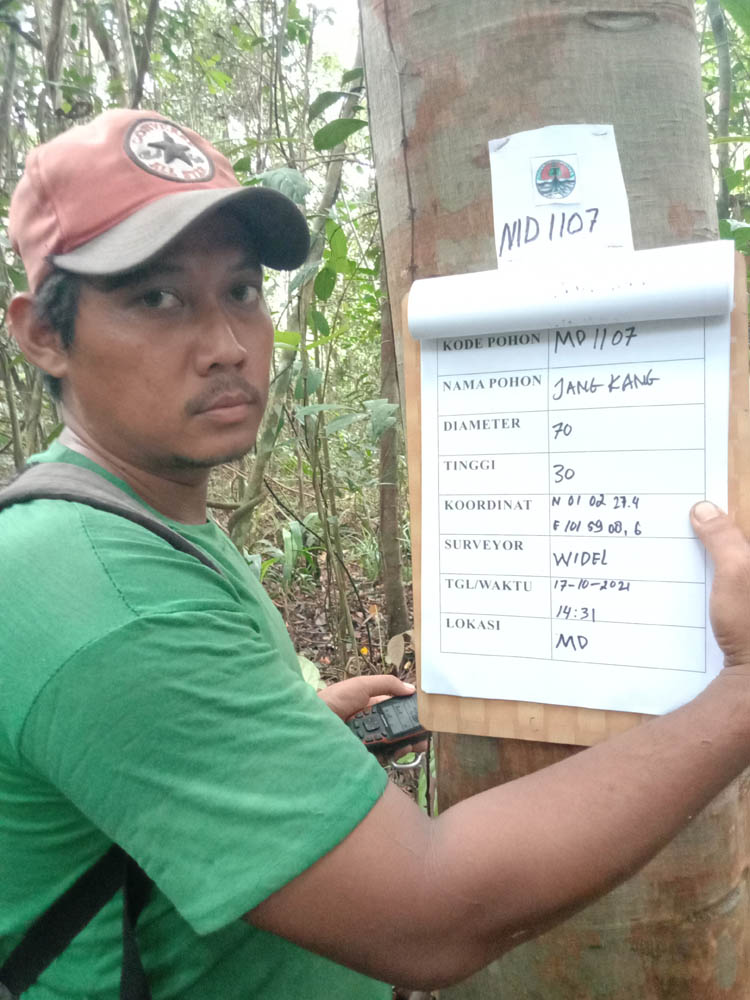 MD 1107
KODE POHON MD 1107
NAMA POHON JANGKANG
DIAMETER 70
TINGGI 30
KOORDINAT N 01 02 27.4
E 101 59 08,6
SURVEYOR WIDEL
TGL/WAKTU 17-10-2021
14:31
LOKASI MD